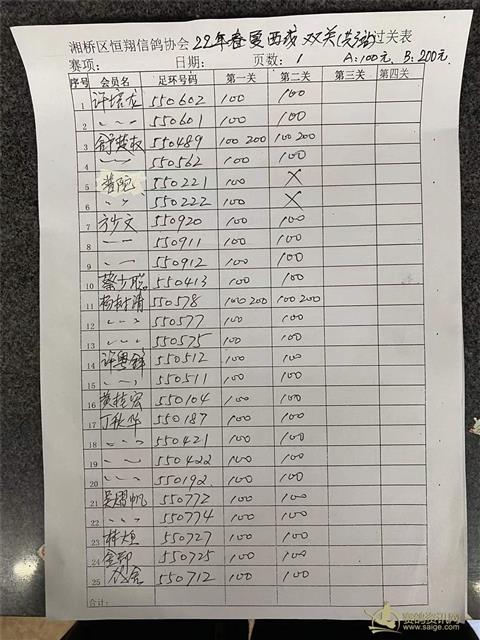 湘桥区恒翔信鸽协会22年春夏西线双关(共3张)过关表
赛项: 日期: 页数: 1 A:100元 B:200元
序号 会员名 足环号码 第一关 第二关 第三关 第四关
1 许培龙 550602 100 100
2 〃 550601 100 100
3 550489 100 200 100 200
4 〃 550562 100 100
5 普陀 550221 100 X
6 〃 550222 100 X
7 方少文 550920 100 100
8 〃 550911 100 100
9 〃 550912 100 100
10 蔡少聪 550413 100 100
11 杨树清 550578 100 200 100 200
12 〃 550577 100 100
13 〃 550575 100 100
14 许粤锋 550512 100 100
15 〃 550511 100 100
16 黄桂宏 550104 100 100
17 丁秋华 550187 100 100
18 〃 550421 100 100
19 〃 550422 100 100
20 〃 550192 100 100
21 吴 帆 550772 100 100
22 〃 550774 100 100
23 林烜 550727 100 100
24 550725 100 100
25 550712 100 100
合计:
赛鸽资讯网
www.saige.com